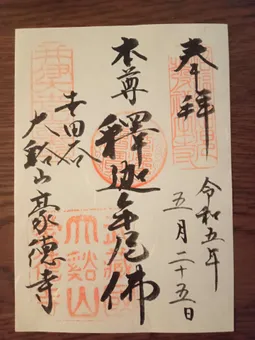 奉拝
令和五年
五月二十五日
本尊
釋迦牟尼佛
世田谷
大谿山豪德寺
大谿山